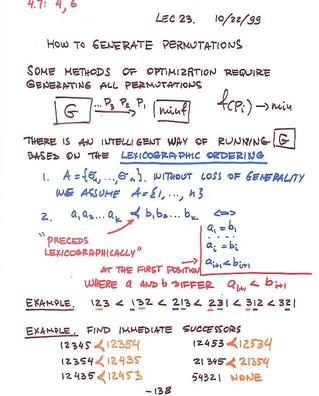 4.7: 4, 6
LEC 23. 10/22/99
HOW TO GENERATE PERMUTATIONS
SOME METHODS OF OPTIMIZATION REQUIRE
GENERATING ALL PERMUTATIONS
G ... P3 P2 P1 minf f(Pi) → min
THERE IS AN INTELLIGENT WAY OF RUNNING G
BASED ON THE LEXICOGRAPHIC ORDERING
1. A = {a1, ..., an}. WITHOUT LOSS OF GENERALITY
WE ASSUME A = {1, ..., n}
2. a1 a2 ... ak ≺ b1 b2 ... bk <=>
a1 = b1
...
"PRECEDS
LEXICOGRAPHICALLY"
ai = bi
AT THE FIRST POSITION ai+1 < bi+1
WHERE a AND b DIFFER ai+1 < bi+1
EXAMPLE. 123 < 132 < 213 < 231 < 312 < 321
EXAMPLE. FIND IMMEDIATE SUCCESSORS
12345 ≺ 12354 12453 ≺ 12534
12354 ≺ 12435 21345 ≺ 21354
12435 ≺ 12453 54321 NONE
-138